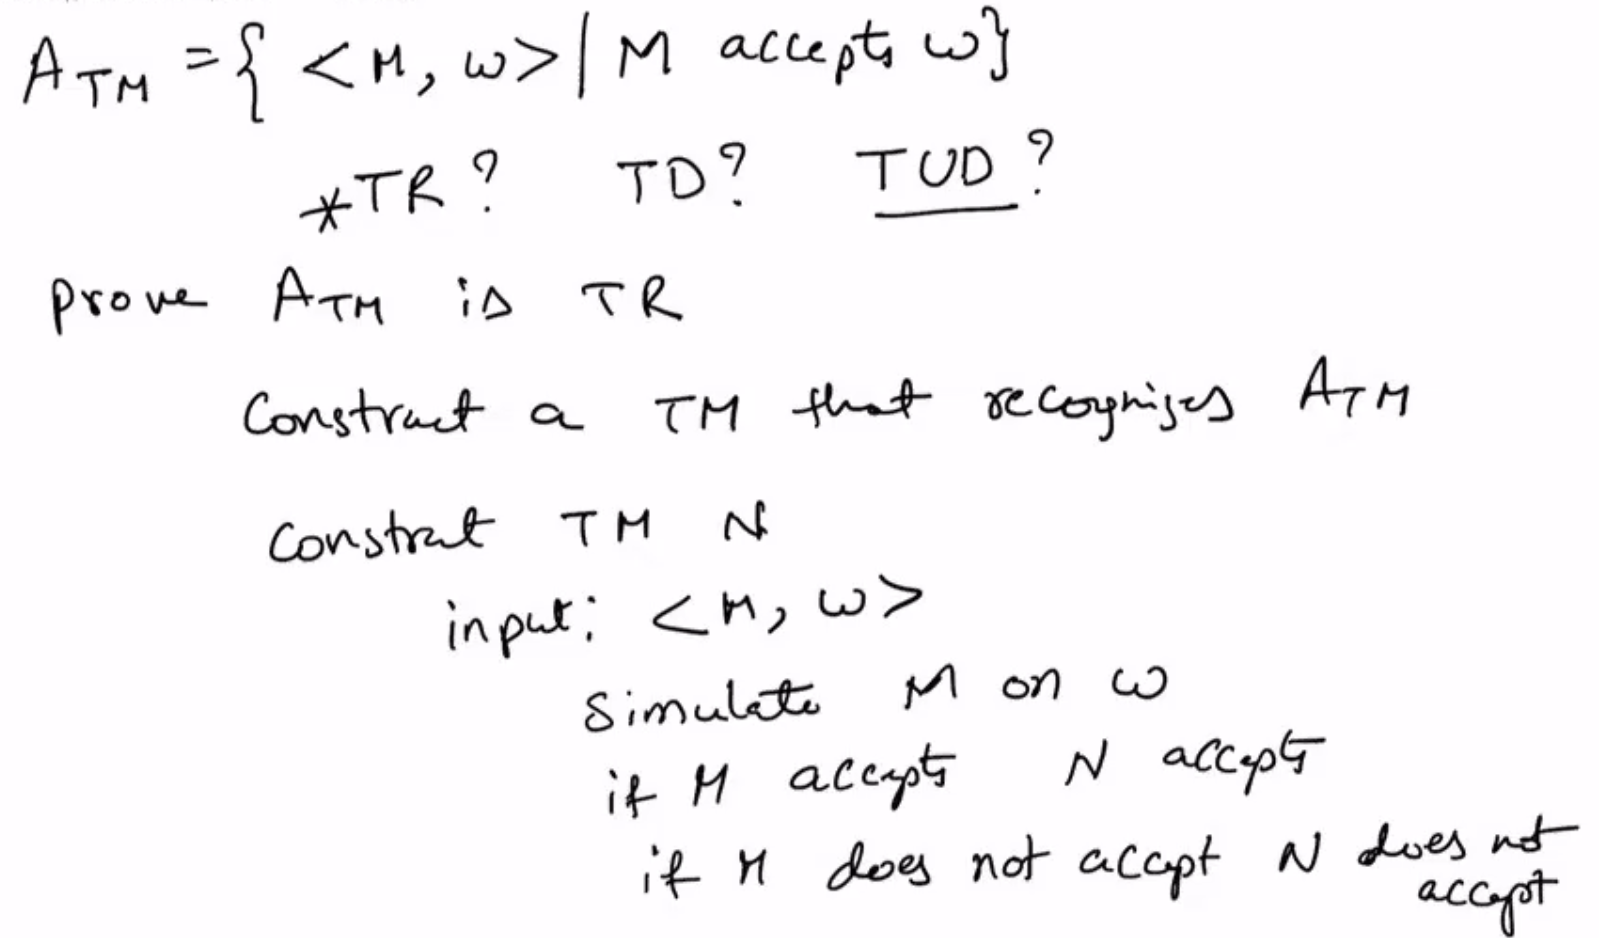 A_TM = { <M, w> | M accepts w}
*TR? TD? TUD?
prove A_TM is TR
Construct a TM that recognizes A_TM
Constrat TM N
input: <M, w>
Simulate M on w
if M accepts N accepts
if M does not accept N does not accept